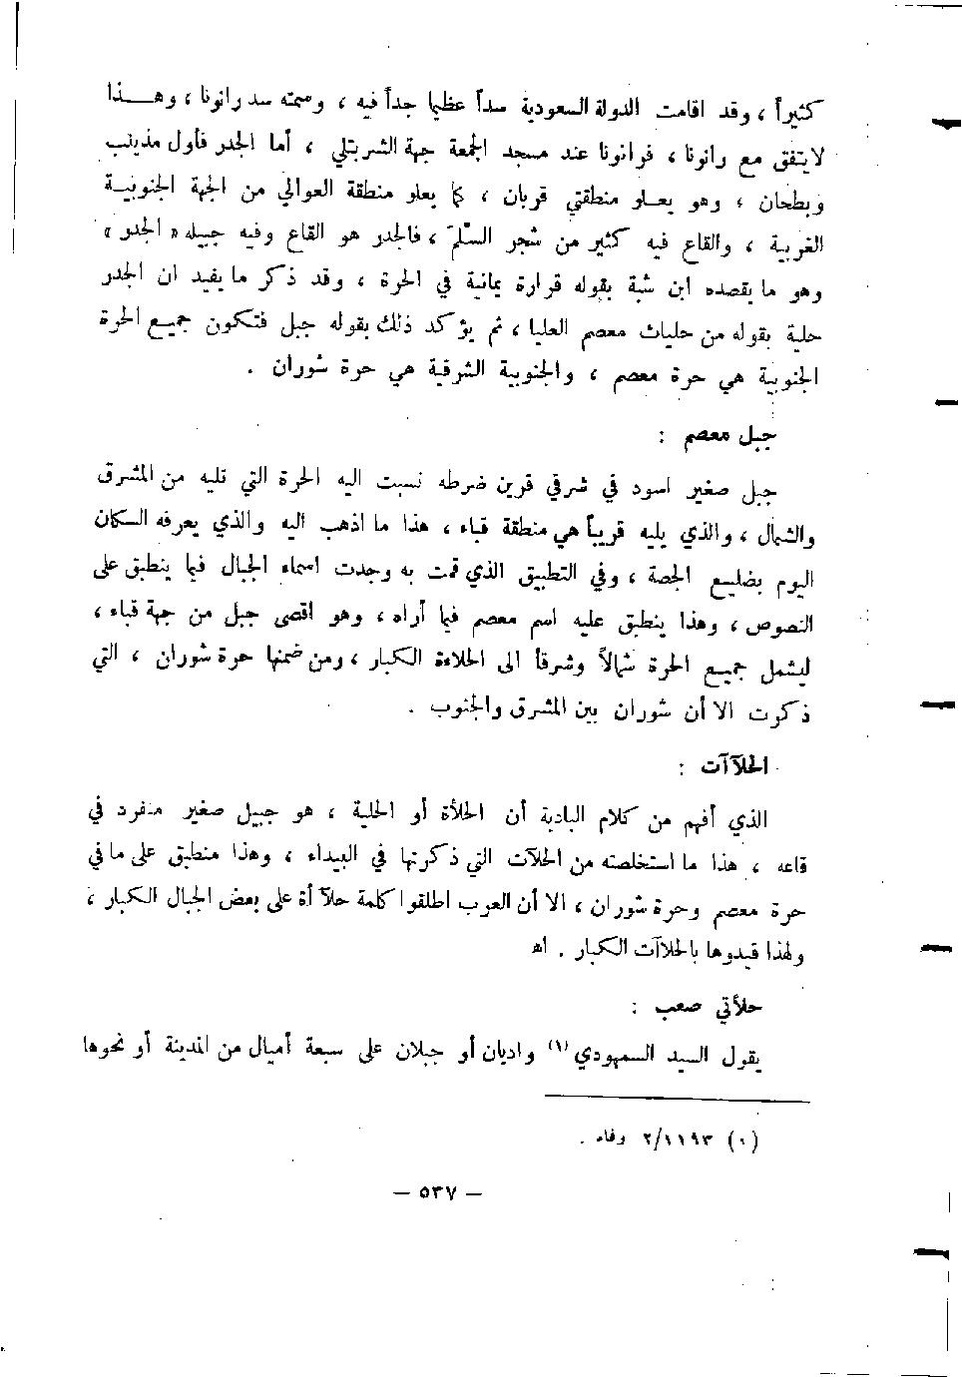 كثيراً ، وقد اقامت الدولة السعودية سداً عظيما جداً فيه ، وسمته سد رانونا ، وهـــذا
لايتفق مع رانونا ، فرانونا عند مسجد الجمعة جهة الشربتلي ، أما الجدر فأول مذينب
وبطحان ، وهو يعـلو منطقتي قربان ، كما يعلو منطقة العوالي من الجهة الجنوبيـة
الغربية ، والقاع فيه كثير من شجر السلم ، فالجدر هو القاع وفيه جبيله « الجدر »
وهو ما يقصده ابن شبة بقوله قرارة يمانية في الحرة ، وقد ذكر ما يفيد ان الجدر
حلية بقوله من حليات معصم العليا ، ثم يؤكد ذلك بقوله جبل فتكون جميـع الحرة
الجنوبية هي حرة معصم ، والجنوبية الشرقية هي حرة شوران .
جبل معصم :
جبل صغير اسود في شرقي قرين ضرطه نسبت اليه الحرة التي تليه من المشرق
والشمال ، والذي يليه قريباً هي منطقة قباء ، هذا ما اذهب اليه والذي يعرفه السكان
اليوم بضليـع الجصة ، وفي التطبيق الذي قمت به وجدت اسماء الجبال فيما ينطبق على
النصوص ، وهذا ينطبق عليه اسم معصم فيما أراه ، وهو اقصى جبل من جهة قباء ،
ليشمل جميـع الحرة شمالاً وشرقاً الى الحلاءة الكبار ، ومن ضمنها حرة شوران ، التي
ذكرت الا أن شوران بين المشرق والجنوب .
الحلاآت :
الذي أفهم من كلام البادية أن الحلأة أو الحلية ، هو جبيل صغير منفرد في
قاعه ، هذا ما استخلصته من الحلآت التي ذكرتها في البيداء ، وهذا منطبق على ما في
حرة معصم وحرة شوران ، الا أن العرب اطلقوا كلمة حلآأة على بعض الجبال الكبار ،
ولهذا قيدوها بالحلاآت الكبار . اه
حلأتي صعب :
يقول السيد السمهودي (١) واديان أو جبلان على سبعة أميال من المدينة أو نحوها
(١) ٢/١١٩٣ وفاء .
— ٥٣٧ —